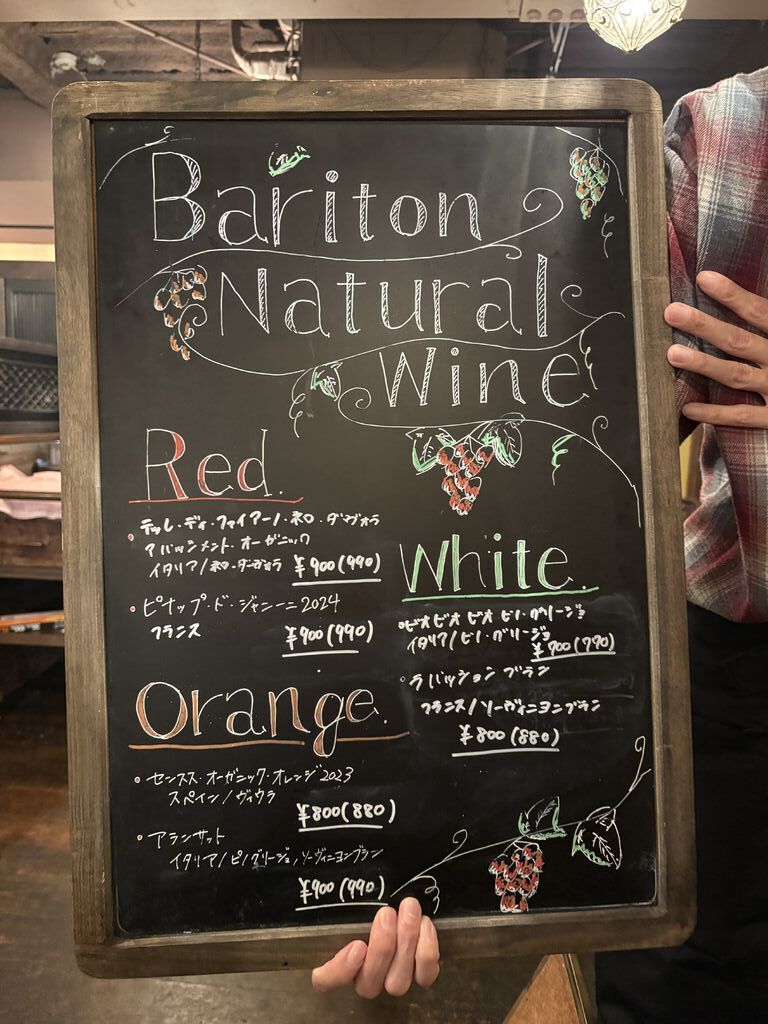 Bariton
Natural
Wine
Red.
テッレ・ディ・ファイアーノ・ネロ・ダヴォラ
アパッシメント・オーガニック
イタリア/ネロ・ダーヴォラ ¥900(990)
ピナップ・ド・ジャンニーニ2024
フランス
¥900(990)
White.
ビオビオ ビオ ピノ・グリージョ
イタリア/ピノ・グリージョ
¥700(770)
ラパッション ブラン
フランス/ソーヴィニヨンブラン
¥800(880)
Orange.
センスス・オーガニック・オレンジ2023
スペイン/ヴィウラ
¥800(880)
アランサット
イタリア/ピノグリージョ,ソーヴィニヨンブラン
¥900(990)